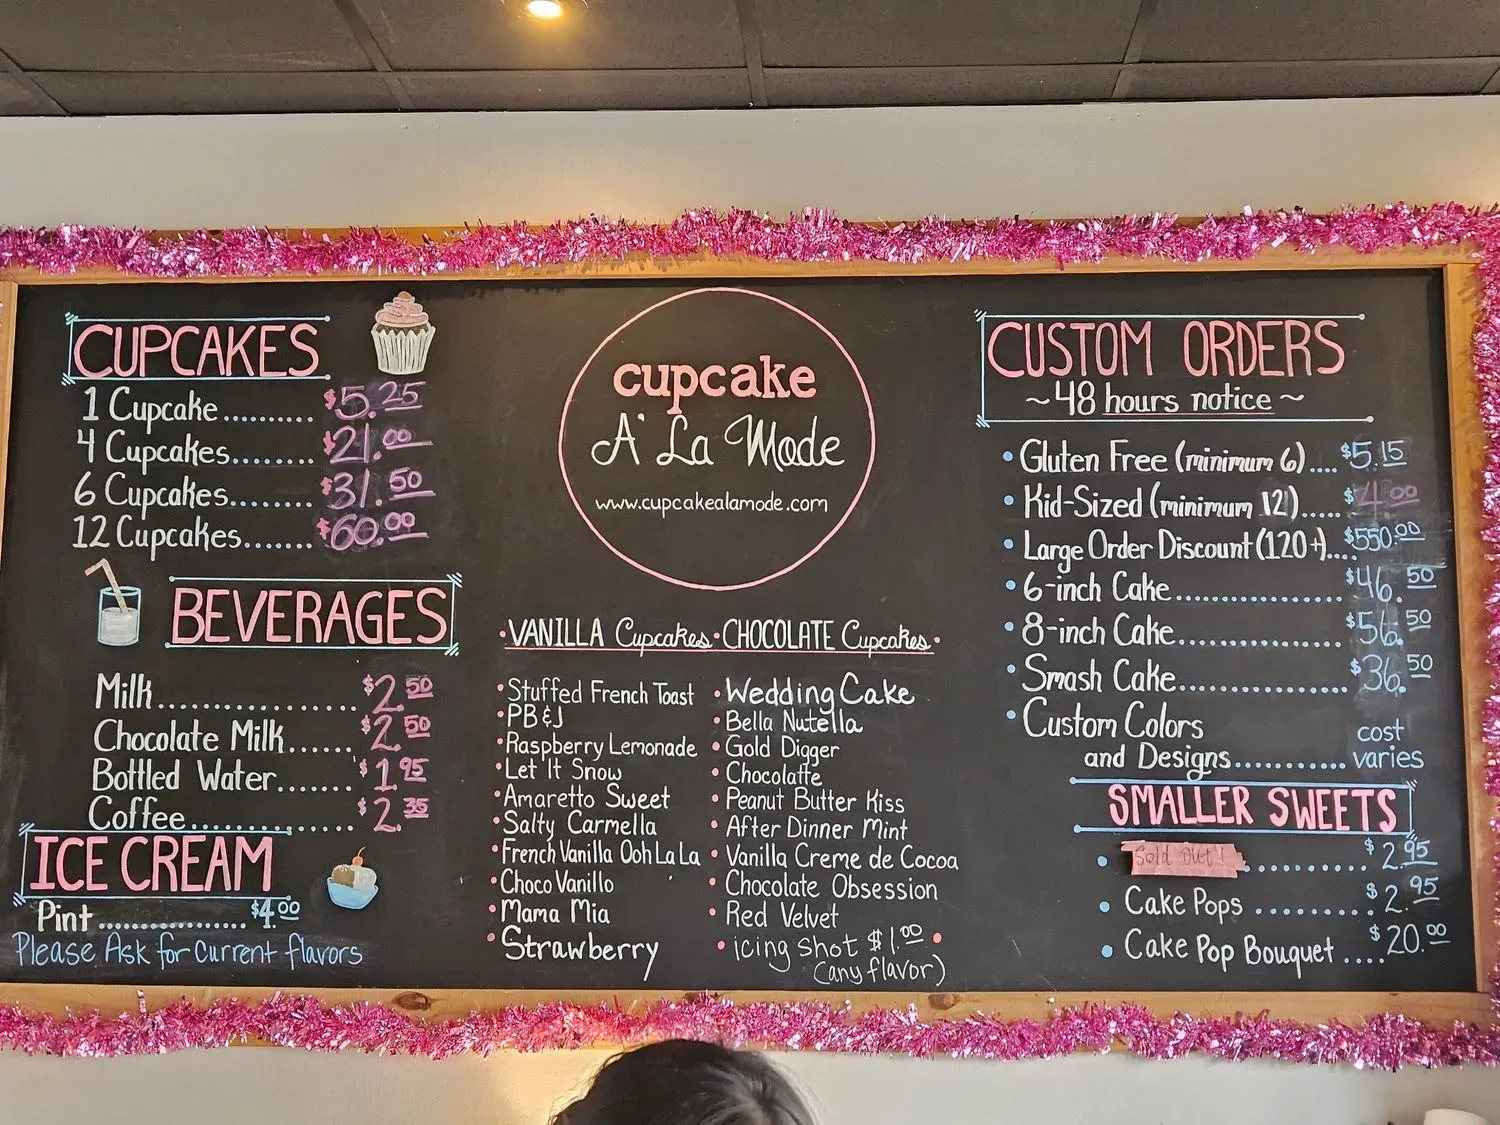 CUPCAKES
1 Cupcake.......... $5.25
4 Cupcakes........ $21.00
6 Cupcakes........ $31.50
12 Cupcakes....... $60.00
BEVERAGES
Milk.................. $2.50
Chocolate Milk...... $2.50
Bottled Water....... $1.95
Coffee................ $2.35
ICE CREAM
Pint .................. $4.00
Please Ask for Current flavors
cupcake
A' La Mode
www.cupcakealamode.com
• VANILLA Cupcakes • CHOCOLATE Cupcakes •
• Stuffed French Toast
• PB&J
• Raspberry Lemonade
• Let It Snow
• Amaretto Sweet
• Salty Carmella
• French Vanilla Ooh La La
• Choco Vanillo
• Mama Mia
• Strawberry
• Wedding Cake
• Bella Nutella
• Gold Digger
• Chocolatte
• Peanut Butter Kiss
• After Dinner Mint
• Vanilla Creme de Cocoa
• Chocolate Obsession
• Red Velvet
• icing shot $1.00 •
(any flavor)
CUSTOM ORDERS
~48 hours notice~
• Gluten Free (minimum 6).... $5.15
• Kid-Sized (minimum 12)...... $4.00
• Large Order Discount (120+).... $550.00
• 6-inch Cake................ $46.50
• 8-inch Cake................ $56.50
• Smash Cake................ $36.50
• Custom Colors cost
and Designs........... varies
SMALLER SWEETS
• Sold out! ............ $2.95
• Cake Pops .......... $2.95
• Cake Pop Bouquet .... $20.00